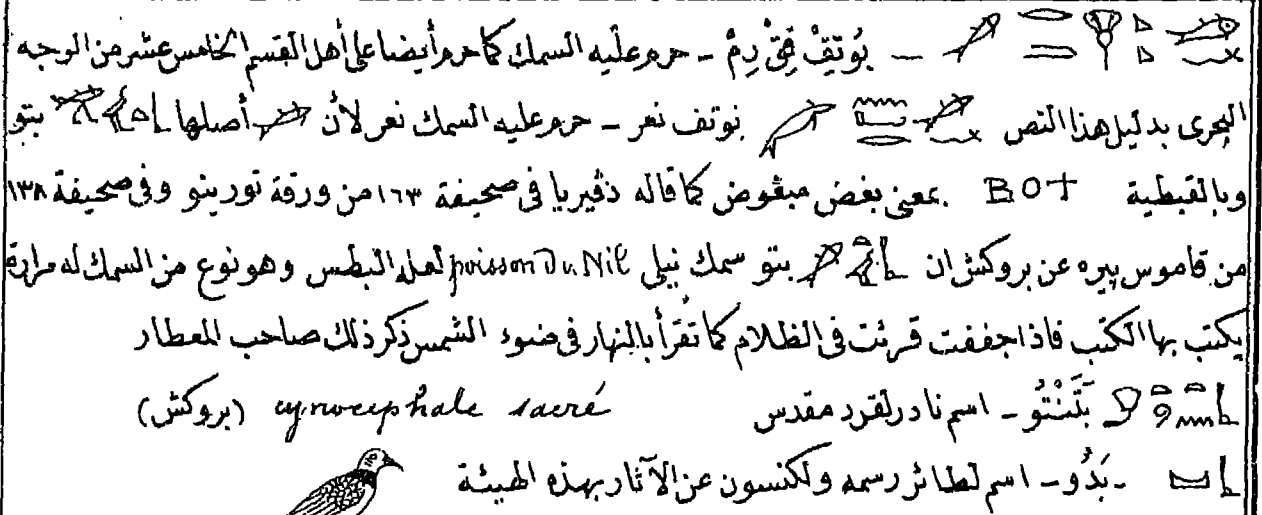 ـ بُوتِفْ فِتِى رِمْ ـ حرم عليه السمك كما حرم أيضا على أهل القسم الخامس عشر من الوجه
البحرى بدليل هذا النص نوتف نعر ـ حرم عليه السمك نعر لأن أصلها بتو
وبالقبطية BOT بمعنى بغض مبغوض كما قاله دڤيريا فى صحيفة ١٦٣ من ورقة تورينو وفى صحيفة ١٣٨
من قاموس پيره عن بروكش ان بتو سمك نيلى poisson du Nil لعله البطس وهو نوع من السمك له مرارة
يكتب بها الكتب فاذا جففت قرئت فى الظلام كما تقرأ بالنهار فى ضوء الشمس ذكر ذلك صاحب المعطار
بَتَنْتُو ـ اسم نادر لقرد مقدس cynocephale sacré (بروكش)
ـ بَدُو ـ اسم لطائر رسمه ولكنسون عن الآثار بهذه الهيئة